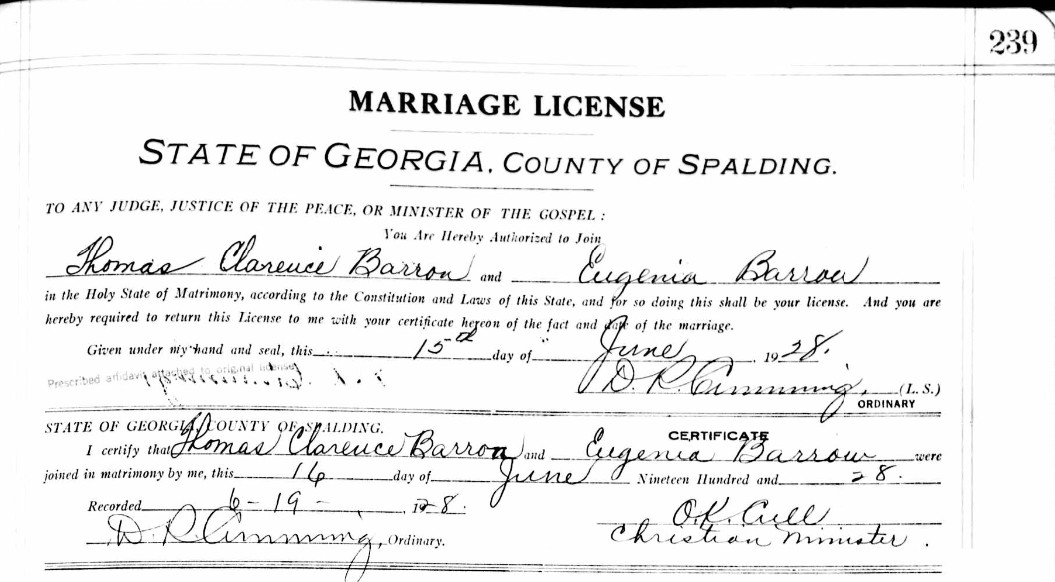 239
MARRIAGE LICENSE
STATE OF GEORGIA, COUNTY OF SPALDING.
TO ANY JUDGE, JUSTICE OF THE PEACE, OR MINISTER OF THE GOSPEL :
You Are Hereby Authorized to Join
Thomas Clarence Barron and Eugenia Barrow
in the Holy State of Matrimony, according to the Constitution and Laws of this State, and for so doing this shall be your license. And you are
hereby required to return this License to me with your certificate hereon of the fact and date of the marriage.
Given under my hand and seal, this 15th day of June 1928.
Prescribed affidavit attached to original license
D. R. Cumming, (L. S.)
ORDINARY
STATE OF GEORGIA, COUNTY OF SPALDING.
CERTIFICATE
I certify that Thomas Clarence Barron and Eugenia Barrow were
joined in matrimony by me, this 16 day of June Nineteen Hundred and 28.
Recorded 6-19-, 1928.
O.K. Cull
D. R. Cumming, Ordinary.
Christian Minister.